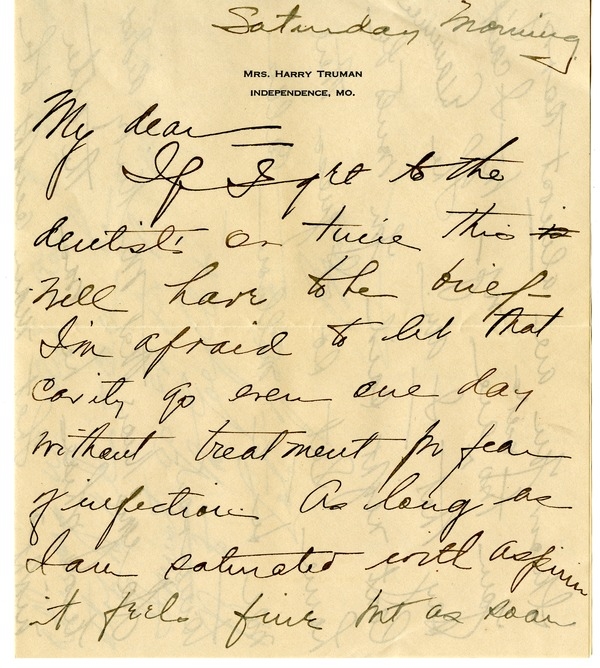 Saturday Morning
MRS. HARRY TRUMAN
INDEPENDENCE, MO.
My dear —
If I get to the
dentist's on time this
will have to be brief –
I'm afraid to let that
cavity go even one day
without treatment for fear
of infection. As long as
I am saturated with aspirin
it feels fine but as soon